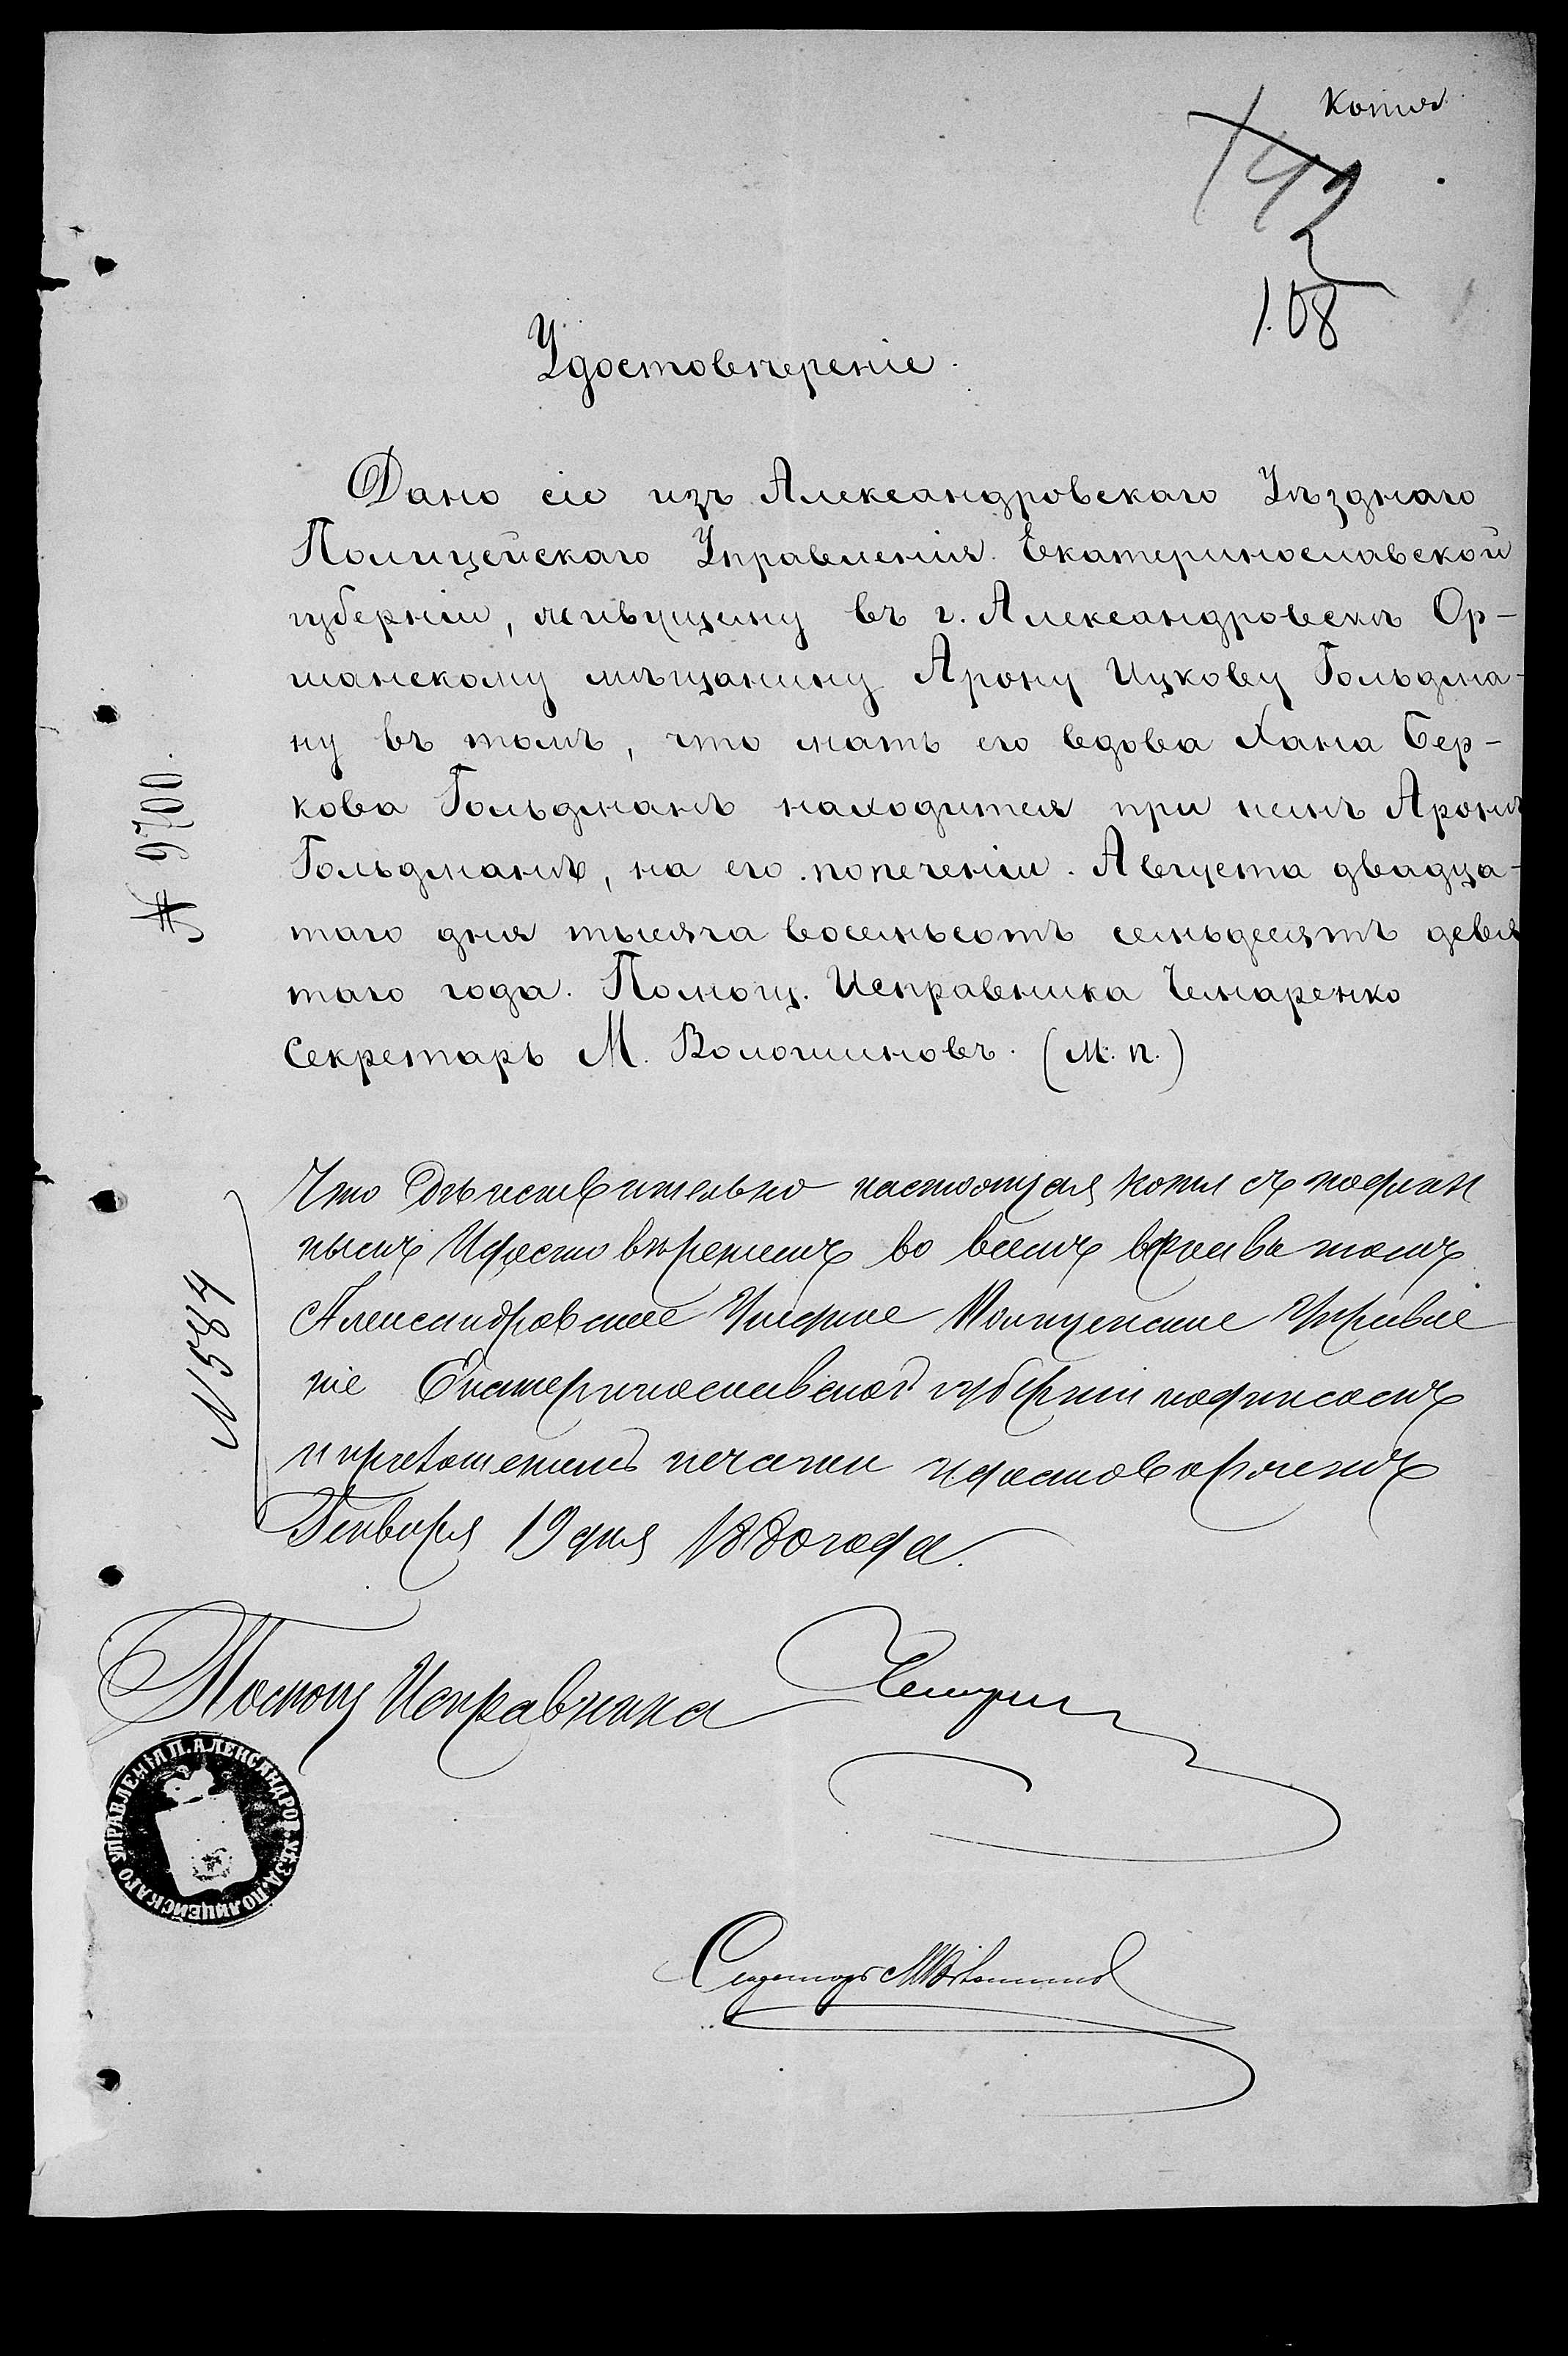 Копія
149
108
Удостовѣреніе.
Дано сіе изъ Александровскаго Уѣзднаго
Полицейскаго Управленія Екатеринославской
губерніи, живущему въ г. Александровскѣ Ор-
шанскому мѣщанину Арону Ицкову Гольдма-
ну въ томъ, что мать его вдова Хана Бер-
кова Гольдманъ находится при немъ Аронѣ
Гольдманѣ, на его попеченіи. Августа двадца-
таго дня тысяча восемьсотъ семьдесятъ девя
таго года. Помощ. Исправника Чемаренко
Секретарь М. Волошиновъ. (М. п.)
№ 9700.
Что дѣйствительно настоящая копія съ подлин
нымъ Удостовѣреніемъ во всемъ вѣрна въ томъ
Александровское Уѣздное Полицейское Управле
ніе Екатеринославской губерніи подписомъ
и приложеніемъ печати удостовѣряетъ
Генваря 19 дня 1880 года.
N 584
Помощ Исправника
П. АЛЕКСАНДРОВ. УѢЗД. ПОЛИЦЕЙСКАГО УПРАВЛЕНІЯ
Секретарь М Волошинов